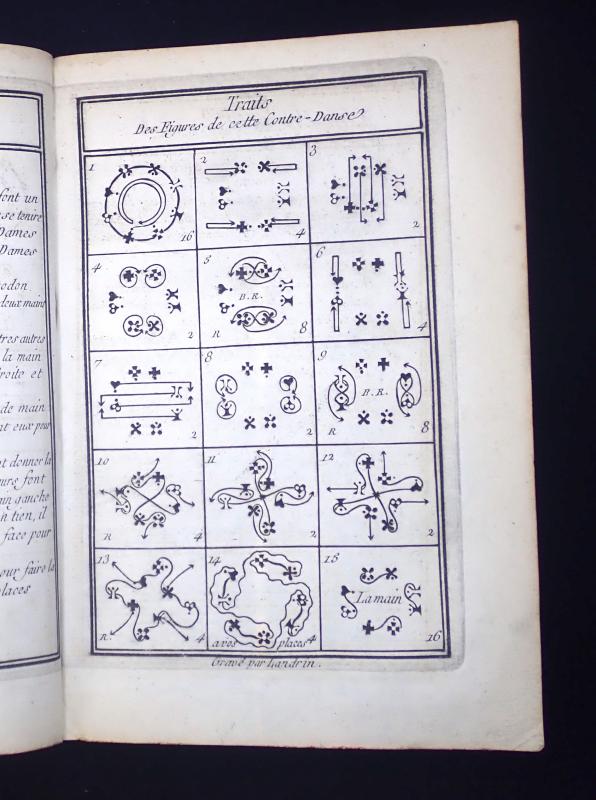 font un
se tenire
Dames
Dames
odon.
deux mains
tres autres
la main
roite et
de main
nt eux pour
t donner la
gure font
in gauche
n tien, il
face pour
our faire la
places
Traits
Des Figures de cette Contre-Danse
1
16
2
4
3
2
4
2
5
B.R.
R
8
6
4
7
2
8
2
9
B.R.
R
8
10
R
4
11
2
12
2
13
R
4
14
a vos places 4
15
La main
16
Gravé par Landrin.